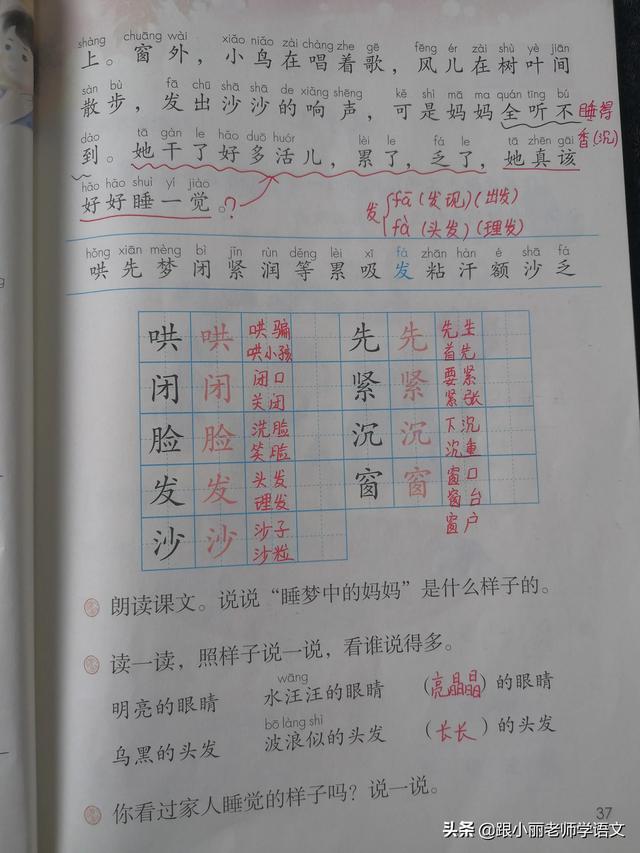 shàng chuāng wài xiǎo niǎo zài chàng zhe gē fēng ér zài shù yè jiān
上。窗外，小鸟在唱着歌，风儿在树叶间
sàn bù fā chū shā shā de xiǎng shēng kě shì mā ma quán tīng bú
散步，发出沙沙的响声，可是妈妈全听不 睡得
dào tā gàn le hǎo duō huór lèi le fá le tā zhēn gāi
到。她干了好多活儿，累了，乏了，她真该 香(沉)
hǎo hǎo shuì yí jiào
好好睡一觉。?
发 fā (发现)(出发)
fà (头发)(理发)
hǒng xiān mèng bì jǐn rùn děng lèi xī fà zhān hàn é shā fá
哄先梦闭紧润等累吸发粘汗额沙乏
哄 哄 哄骗 哄小孩 先 先 先生 首先
闭 闭 闭口 关闭 紧 紧 要紧 紧张
脸 脸 洗脸 笑脸 沉 沉 下沉 沉重
发 发 头发 理发 窗 窗 窗口 窗台 窗户
沙 沙 沙子 沙粒
朗读课文。说说“睡梦中的妈妈”是什么样子的。
读一读，照样子说一说，看谁说得多。
wāng
明亮的眼睛 水汪汪的眼睛 (亮晶晶)的眼睛
bō làng shì
乌黑的头发 波浪似的头发 (长长)的头发
你看过家人睡觉的样子吗？说一说。
37
头条 @跟小丽老师学语文